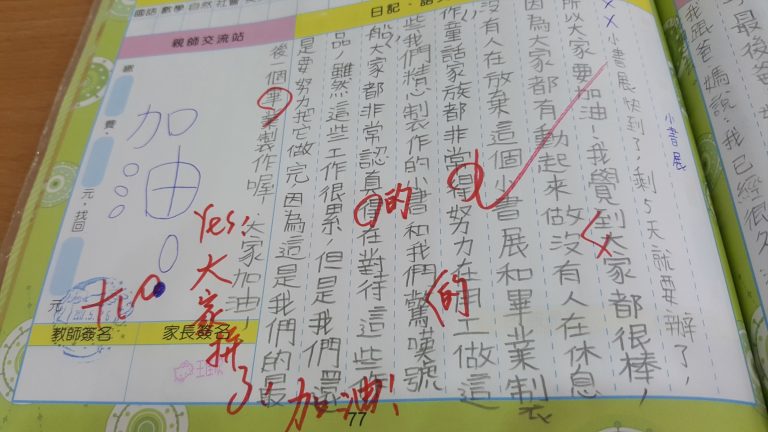 我跟爸媽說，我已經很
小書展
××小書展快到了，剩5天就要辦了，
所以大家要加油！我覺到大家都很棒，
因為大家都有動起來做沒有人在休息
沒有人在放棄這個小書展和畢業製
作童話家族都非常得努力在用工做這
的
些我們精心製作的小書和我們驚嘆號
船大家都非常認真得在對待這些作
的
品，雖然這些工作很累，但是我們還
是要努力把它做完因為這是我們的最
後個畢業製作喔，大家加油，
Yes!大家拼了！加油！
國語 數學 自然 社會
日記
親師交流站
繳 費 元，找回 元
加油！
教師簽名
家長簽名
77